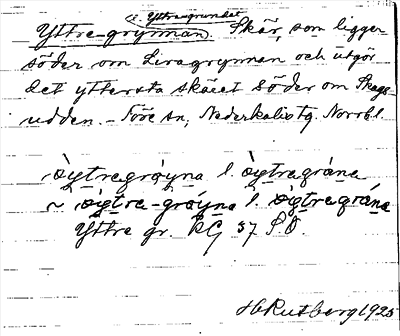 l. Yttregrundet
Yttre-grynnan. Skär, som ligger
söder om Siragrynnan och utgör
det yttersta skäret söder om Skags-
udden. – Töre sn, Nederkalix tg. Norrbl.
òytregrǿyna l. òytregråne
~ òytre-grǿyna l. òytregråna
Yttre gr. RG 37 S.O.
HRutberg 1925